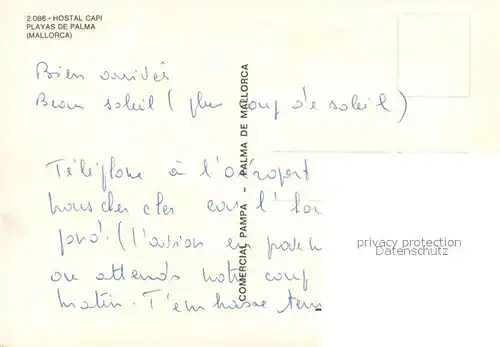 2.086 - HOSTAL CAPI
PLAYAS DE PALMA
(MALLORCA)
Bien arrivés
Beau soleil (plus coup de soleil)
Téléphone à l'aéroport
nous chercher car l'
(l'avion en
ou attends notre coup
matin. T'embrasse
COMERCIAL PAMPA - PALMA DE MALLORCA
privacy protection
Datenschutz